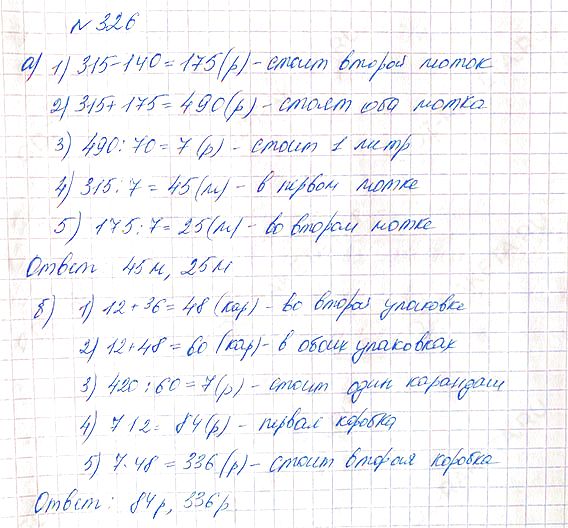 № 326
а) 1) 315-140=175(р)-стоит второй моток
2) 315+175=490(р)-стоят оба мотка
3) 490:70=7(р)-стоит 1 литр
4) 315:7=45(м)-в первом мотке
5) 175:7=25(м)-во втором мотке
Ответ 45м, 25м
б) 1) 12+36=48(кар)-во второй упаковке
2) 12+48=60(кар)-в обоих упаковках
3) 420:60=7(р)-стоит один карандаш
4) 7·12=84(р)-первая коробка
5) 7·48=336(р)-стоит вторая коробка
Ответ: 84р, 336р